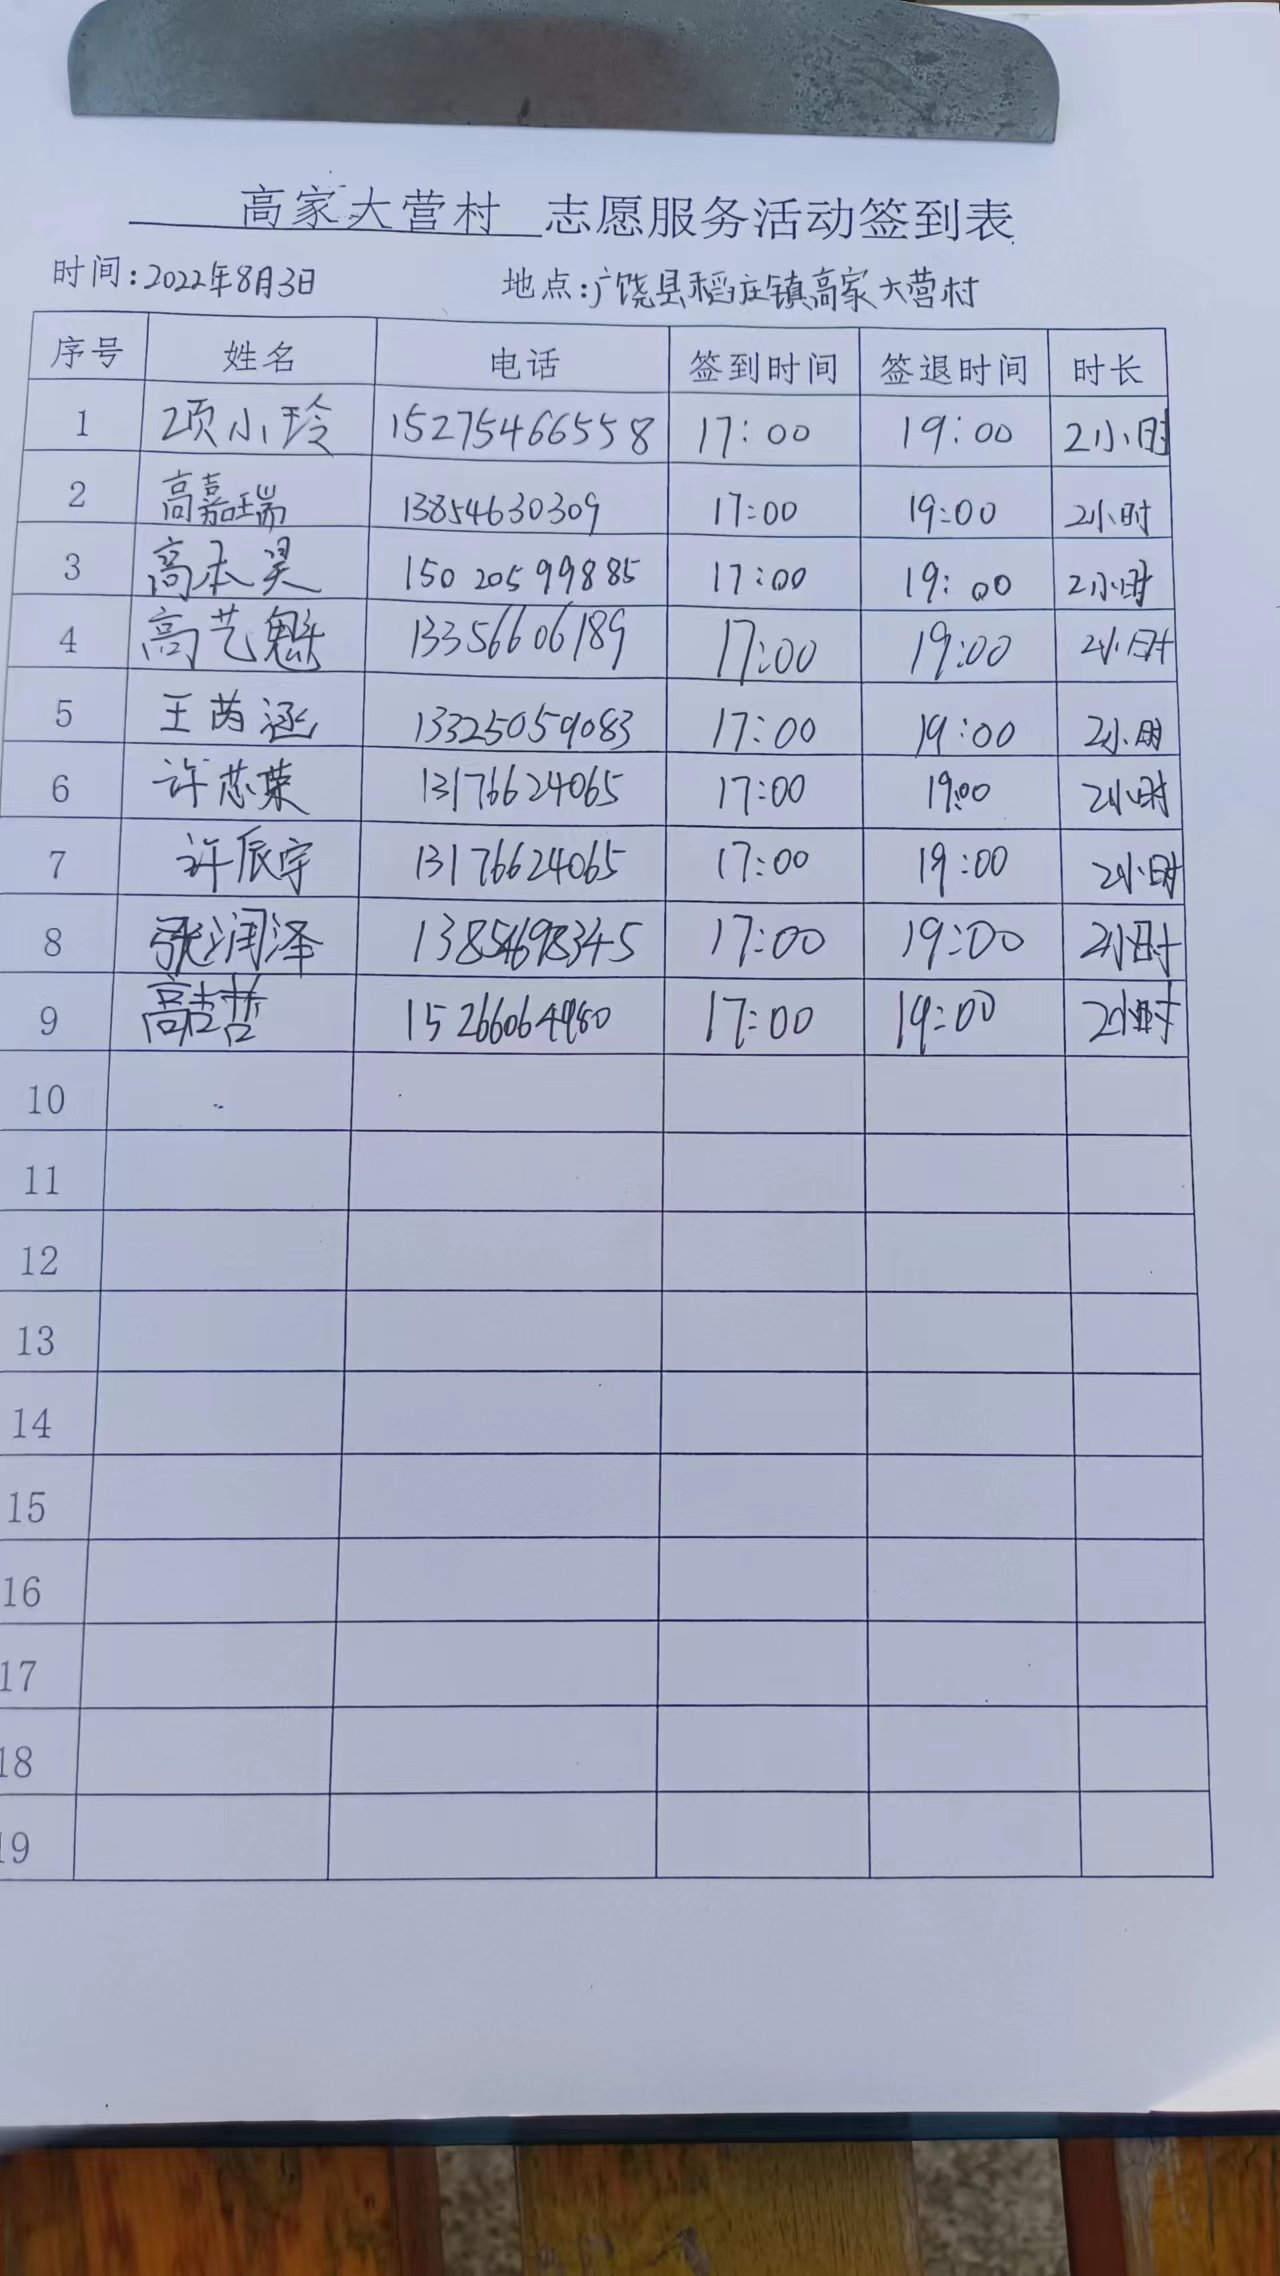 高家大营村 志愿服务活动签到表
时间:2022年8月3日 地点:广饶县稻庄镇高家大营村
序号 姓名 电话 签到时间 签退时间 时长
1 项小玲 15275466558 17:00 19:00 2小时
2 高嘉瑞 13854630309 17:00 19:00 2小时
3 高本昊 15020599885 17:00 19:00 2小时
4 高艺魁 13356606189 17:00 19:00 2小时
5 王芮涵 13325059083 17:00 19:00 2小时
6 许芯荣 13176624065 17:00 19:00 2小时
7 许辰宇 13176624065 17:00 19:00 2小时
8 张润泽 13854698345 17:00 19:00 2小时
9 17:00 19:00 2小时
10
11
12
13
14
15
16
17
18
19